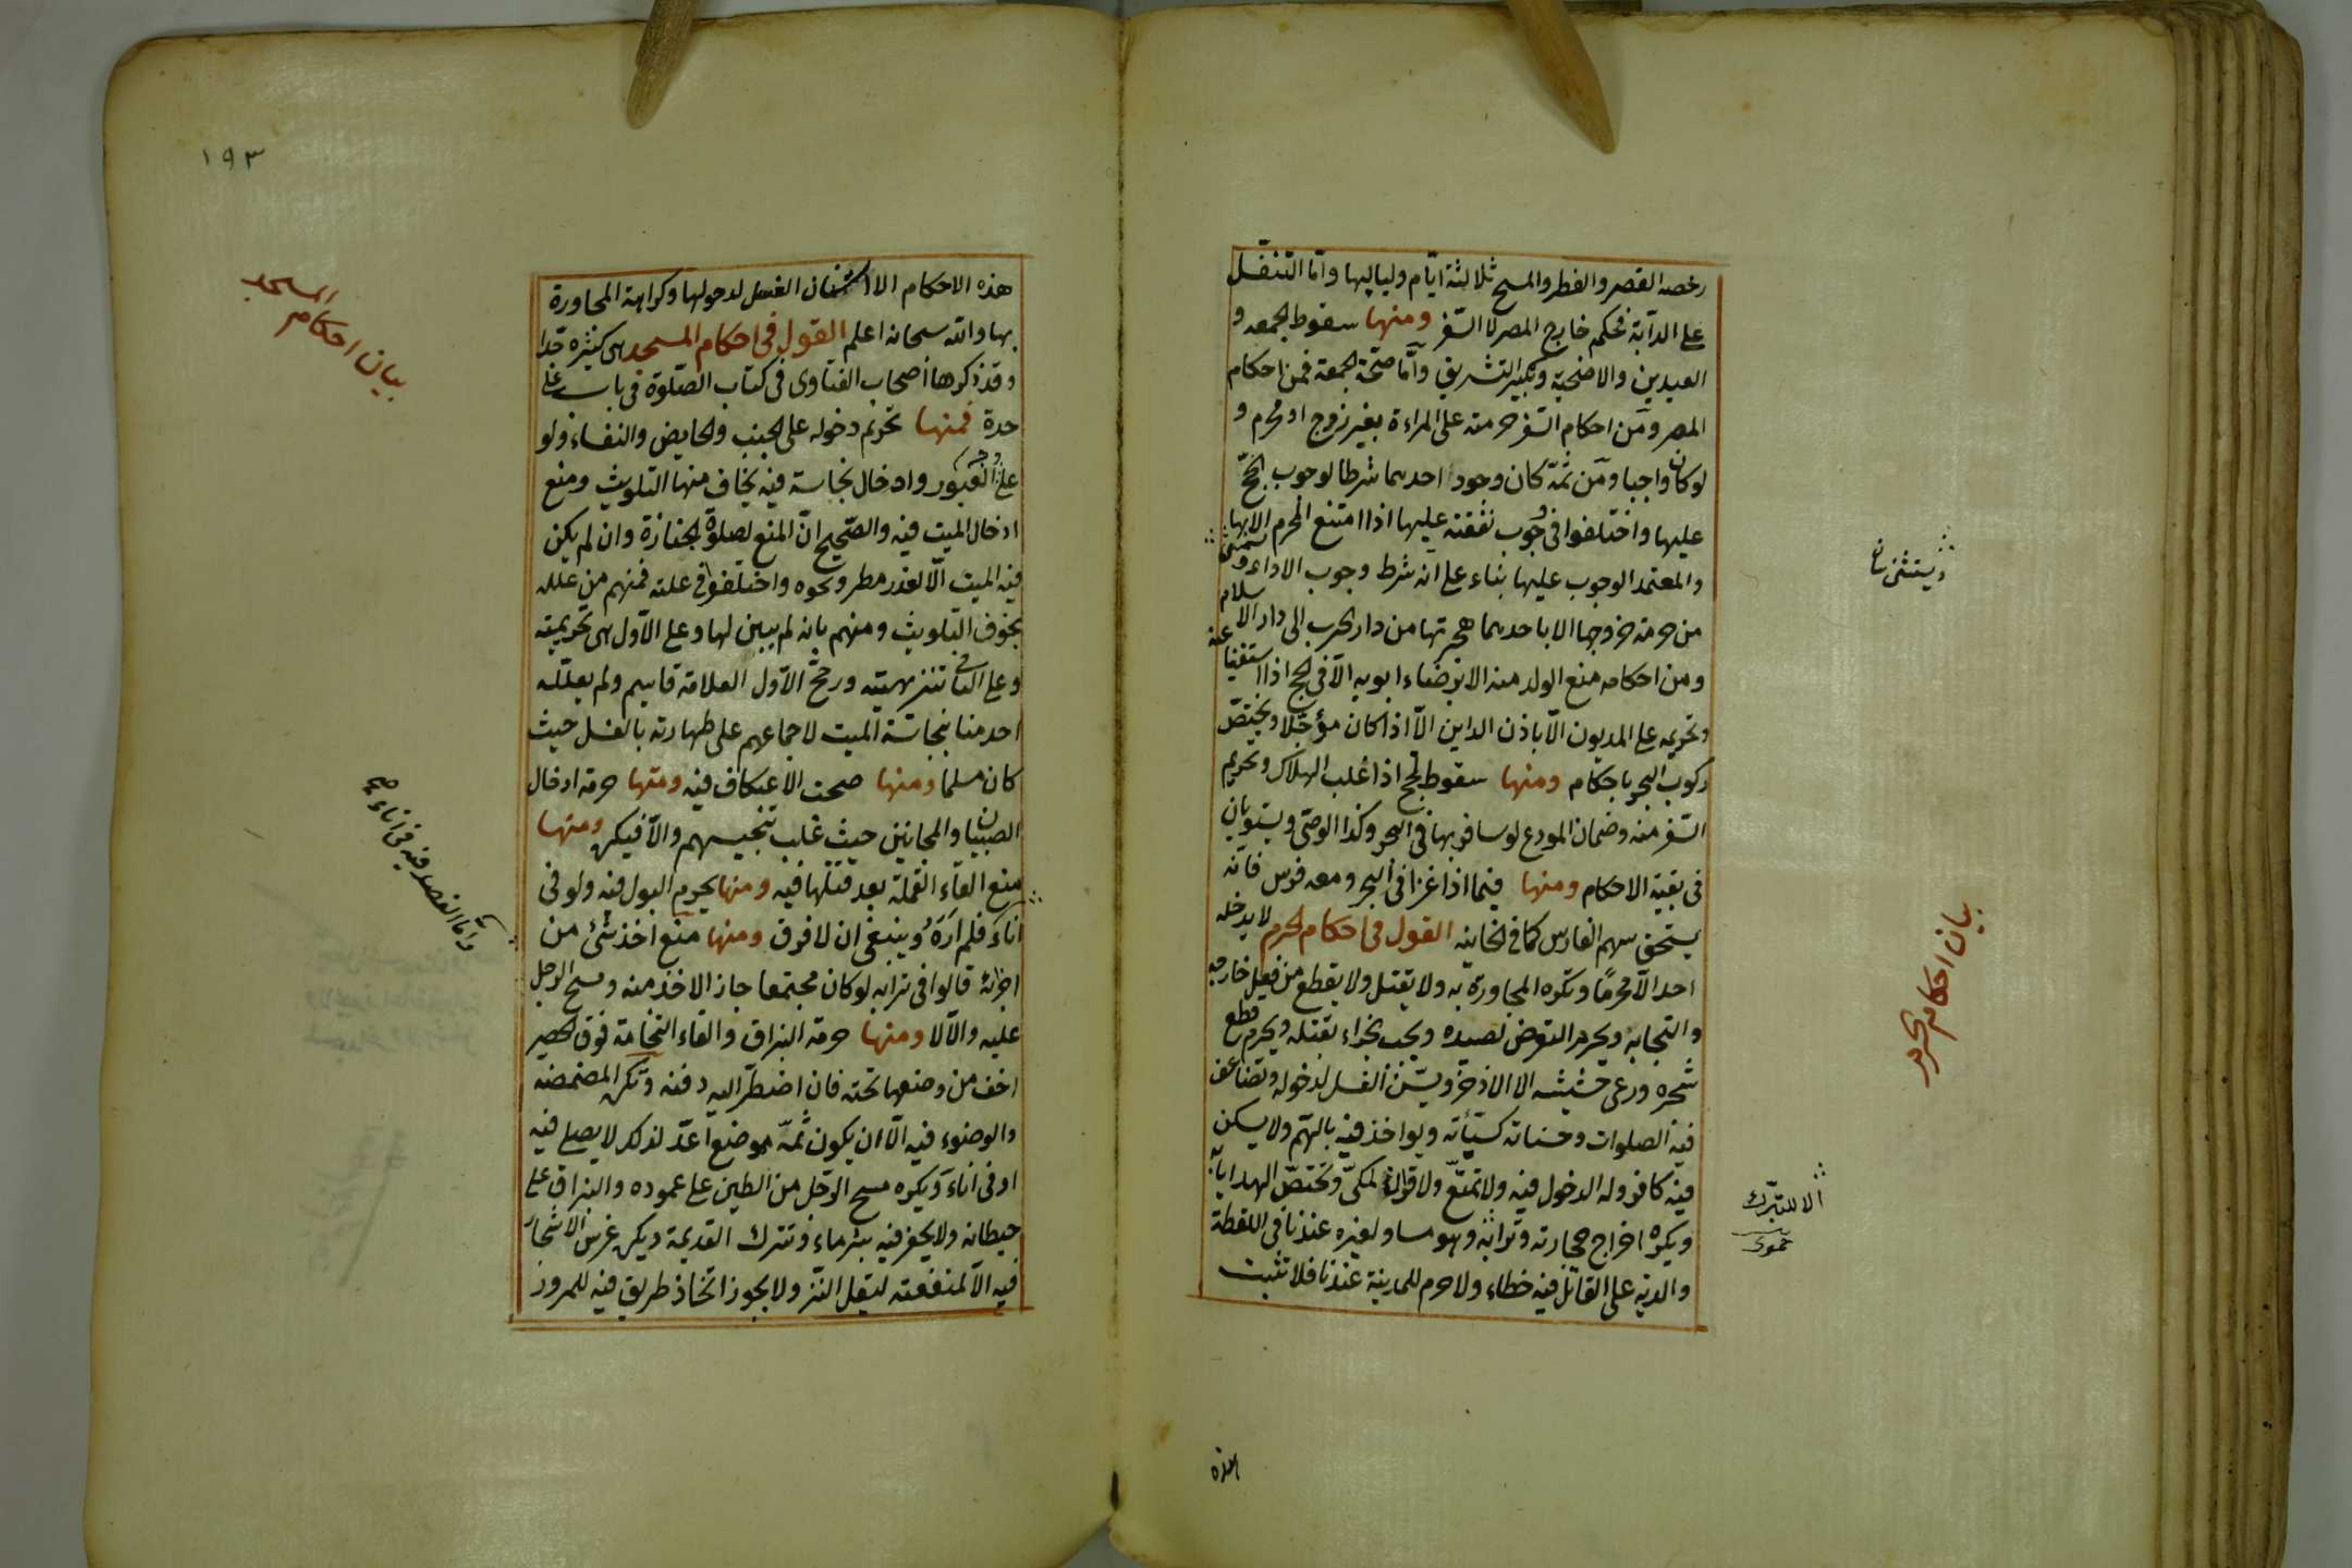 رخصه القصر والفطر والمسح ثلاثة ايام ولياليها واما التنفل
على الدابة فحكم خارج المصر لا السفر ومنها سقوط الجمعه و
العيدين والاضحية وتكبير التشريق واما صحة الجمعة فمن احكام
المصر ومن احكام السفر حرمته على المراءة بغير زوج او محرم و
لو كان واجبا ومن ثمة كان وجود احدهما شرطا لوجوب الحج
عليها واختلفوا في وجوب نفقته عليها اذا امتنع المحرم الا بها
والمعتمد الوجوب عليها بناء على انه شرط وجوب الاداء
من حرمة خروجها الا باحدهما هجرتها من دار الحرب الى دار الاسلام
ومن احكامه منع الولد منه الا برضاء ابويه الا في الحج اذا استغنيا عنه
وتحريمه على المديون الا باذن الداين الا اذا كان مؤجلا ويختص
ركوب البحر باحكام ومنها سقوط الحج اذا غلب الهلاك وتحريم
السفر منه وضمان المودع لو سافر بها في البحر وكذا الوصى ويستويان
في بقية الاحكام ومنها فيما اذا غزا في البحر ومعه فرس فانه
يستحق سهم الفارس كما في الخانيه القول في احكام الحرم لا يدخله
احد الا محرما وتكره المجاورة به ولا يقتل ولا يقطع من فعل خارجه
والتجا به ويحرم التعرض لصيده ويجب الجزاء بقتله ويحرم قطع
شجره ورعى حشيشه الا الاذخر ويسن الغسل لدخوله وتضاعف
فيه الصلوات وحسناته كسيأته ويواخذ فيه بالهم ولا يسكن
فيه كافر وله الدخول فيه ولا تمتع ولا قران لمكى وتختص الهدايا به
ويكره اخراج حجارته وترابه وهو مساو لغيره عندنا في اللقطة
والدية على القاتل فيه خطاء ولا حرم للمدينة عندنا فلا تثبت
هذه
ويستثنى
بيان احكام الحرم
الا للتبرك
حموى
١٩٣
هذه الاحكام الا استنان الغسل لدخولها وكراهة المجاورة
بها والله سبحانه اعلم القول في احكام المسجد هى كثيره جدا
وقد ذكرها اصحاب الفتاوى في كتاب الصلوة في باب على
حدة فمنها تحريم دخوله على الجنب والحايض والنفساء ولو
على وجه العبور وادخال نجاسة فيه يخاف منها التلويث ومنع
ادخال الميت فيه والصحيح ان المنع لصلوة الجنازة وان لم يكن
فيه الميت الا لعذر مطر ونحوه واختلفوا في علته فمنهم من علله
بخوف التلويث ومنهم بانه لم يبين لها وعلى الاول هى تحريمية
وعلى الثانى تنزيهية ورجح الاول العلامة قاسم ولم يعلله
احد منا بنجاسة الميت لاجماعهم على طهارته بالغسل حيث
كان مسلما ومنها صحت الاعتكاف فيه ومنها حرمة ادخال
الصبيان والمجانين حيث غلب تنجيسهم والا فيكره ومنها
منع القاء القملة بعد قتلها فيه ومنها يحرم البول فيه ولو في
اناء فلم اره وينبغى ان لا فرق ومنها منع اخذ شئ من
اجزائه قالوا في ترابه لو كان مجتمعا جاز الاخذ منه ومسح الرجل
عليه والا لا ومنها حرمة البزاق والقاء النخامة فوق الحصير
اخف من وضعها تحته فان اضطر اليه دفنه وتكره المضمضه
والوضوء فيه الا ان يكون ثمة موضع اعد لذلك لا يصلى فيه
او في اناء ويكره مسح الرجل من الطين على عموده والبزاق على
حيطانه ولا يحفر فيه بئر ماء وتترك القديمة ويكره غرس الاشجار
فيه الا لمنفعته ليقل النز ولا يجوز اتخاذ طريق فيه للمرور
بيان احكام المسجد
واما الفصد فيه في اناء